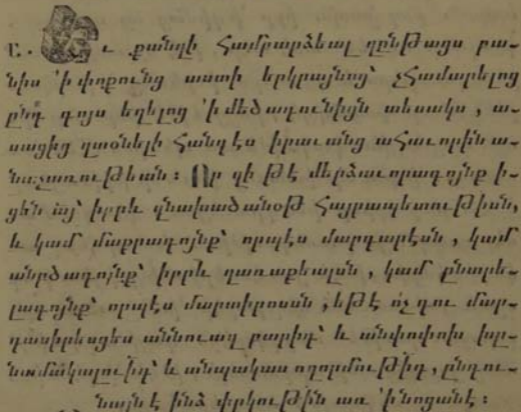 Ը. Եւ քանզի համբարձեալ զընթացս բա-
նիս ՚ի փոքունց աստի երկրայնոց՝ չհամարելոց
ընդ գոյս եղելոց ՚ի մեծագունիցն տեսակս, ա-
սացից զտօնելի հանդէս իրաւանց ահաւորին ա-
նաչառութեան։ Որ զի թէ մերձաւորագոյնք ի-
ցեն այ՝ իբրև զնախածանօթ հայրապետութիւն,
և կամ մաքրագոյնք՝ որպէս մարգարէսն, կամ
անրծագոյնք՝ իբրև զառաքեալսն, կամ ընտրե-
լագոյնք՝ որպէս մարտիրոսսն, եթէ ոչ դու մար-
դասիրեսցես աննուազ բարիդ՝ և անփոփոխ խը-
նամակալուիդ՝ և անպակաս ողորմութիդ, ընդու-
նայն է ինձ փրկութին առ ՚ի նոցանէ։